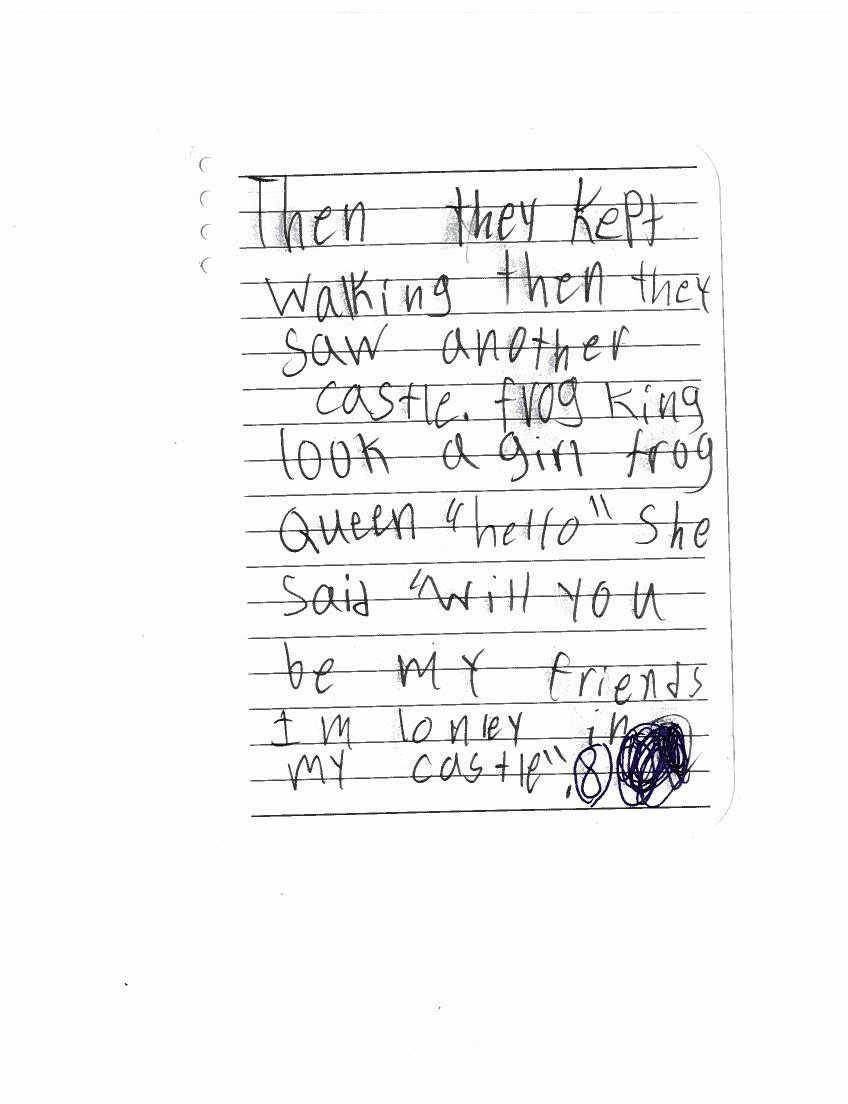 Then they kept
walking then they
saw another
castle. frog king
look a girl frog
Queen "hello" she
said "will you
be my friends
I m loney in
my castle". 8